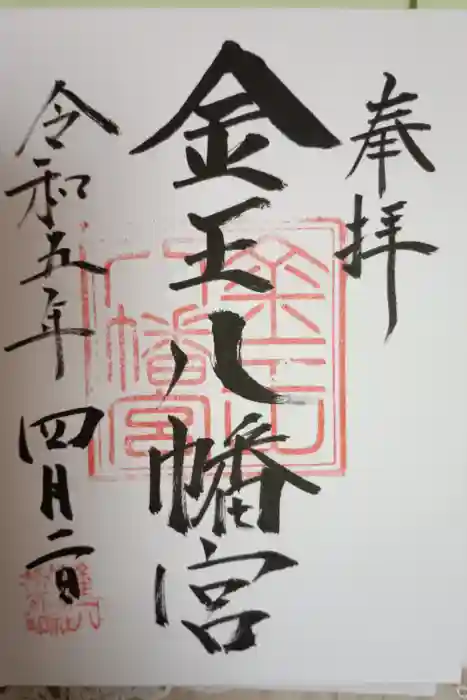 奉拝
金王八幡宮
令和五年四月二日
金王八幡宮